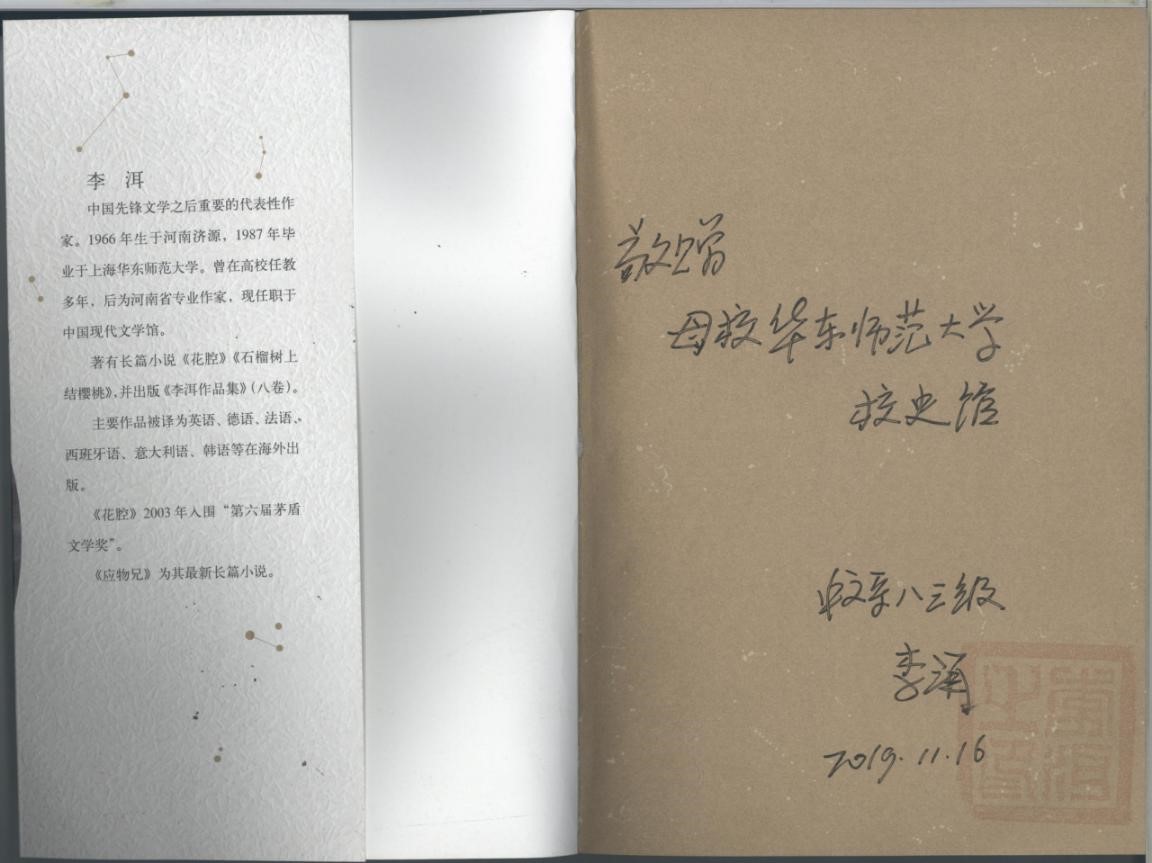 李 洱
中国先锋文学之后重要的代表性作
家。1966年生于河南济源，1987年毕
业于上海华东师范大学。曾在高校任教
多年，后为河南省专业作家，现任职于
中国现代文学馆。
著有长篇小说《花腔》《石榴树上
结樱桃》，并出版《李洱作品集》（八卷）。
主要作品被译为英语、德语、法语、
西班牙语、意大利语、韩语等在海外出
版。
《花腔》2003年入围“第六届茅盾
文学奖”。
《应物兄》为其最新长篇小说。
敬赠
母校华东师范大学
校史馆
中文系八三级
李洱
2019.11.16